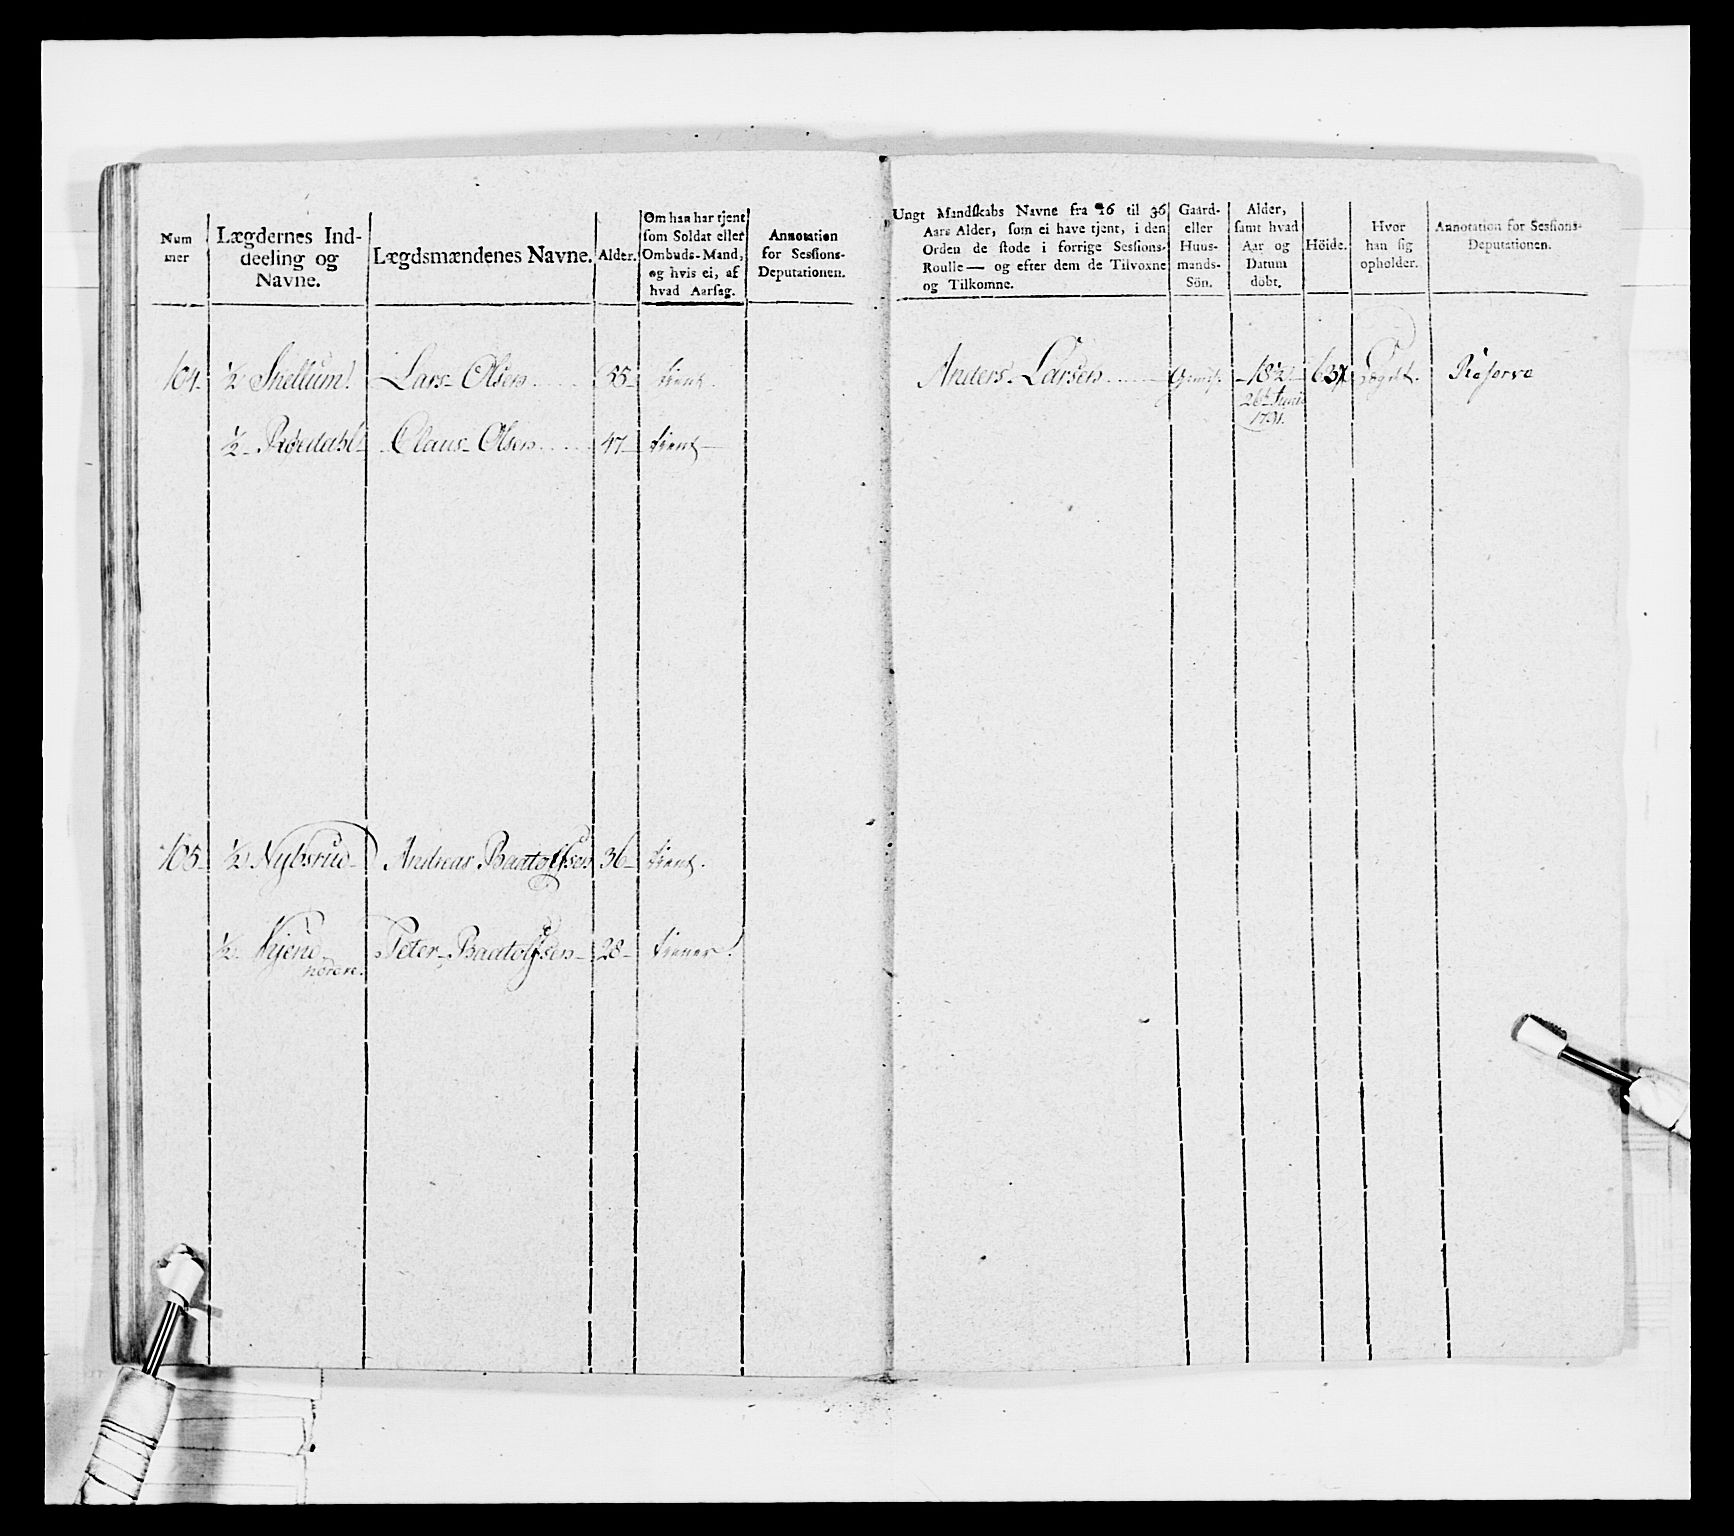 Num
mer
Lægdernes Ind-
deeling og
Navne.
Lægdsmændenes Navne.
Alder.
Om han har tjent
som Soldat eller
Ombuds-Mand,
og hvis ei, af
hvad Aarsag.
Annotation
for Sessions-
Deputationen.
Ungt Mandskabs Navne fra 16 til 36
Aars Alder, som ei have tjent, i den
Orden de stode i forrige Sessions-
Roulle — og efter dem de Tilvoxne
og Tilkomne.
Gaard-
eller
Huus-
mands-
Sön.
Alder,
samt hvad
Aar og
Datum
döbt.
Höide.
Hvor
han sig
opholder.
Annotation for Sessions-
Deputationen.
104. ½ Snellum. Lars Olsen 55 tient
Anders Larsen 18½ Lægdet. Reserve
26de Junii
1791.
½ Røedahl Claus Olsen 47 tient
105 ½ Nybsrud Andreas Baatolfsen 36 tient.
½ Peter Baatolfsen 28 tiener.
nordre.